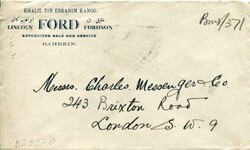 KHALIL BIN EBRAHIM KANOO.
LINCOLN FORD FORDSON
AUTHORIZED SALE AND SERVICE
BAHREIN.
Messrs. Charles Messenger & Co.
243 Brixton Road
London S.W. 9